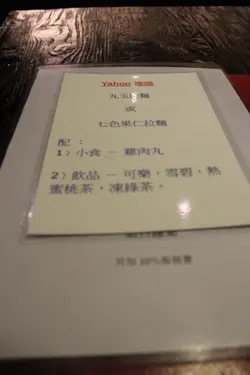 Yahoo 團購
或
七色果仁拉麵
配：
1) 小食 — 雞肉丸
2) 飲品 — 可樂，雪碧，熱
蜜桃茶，凍綠茶。
另加 10%服務費